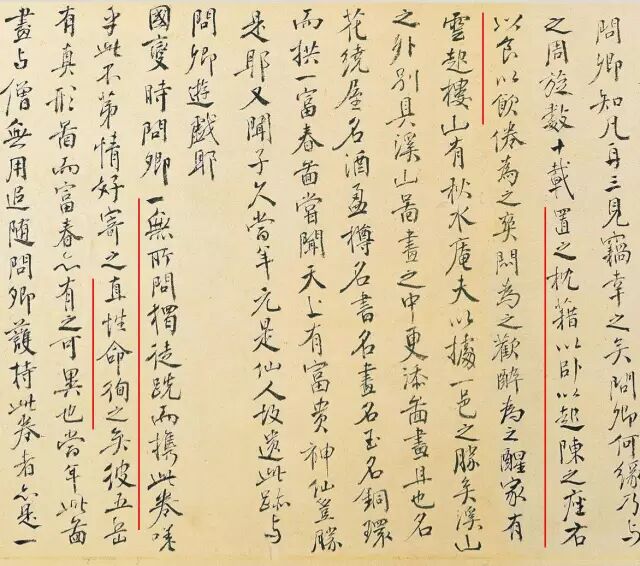 問卿知凡再三見竊幸之矣問卿何緣乃与
之周旋數十載置之枕藉以卧以起陳之座右
以食以飲倦為之爽悶為之歡醉為之醒家有
雲起樓山有秋水庵夫以據一邑之勝矣溪山
之外別具溪山啚畫之中更添啚畫且也名
花繞屋名酒盈樽名書名畫名玉名銅環
而拱一富春啚嘗聞天上有富貴神仙豈勝
是耶又聞子久當年元是仙人故遺此跡与
問卿遊戲耶
國變時問卿一無所問獨徒跣而攜此卷嗟
乎此不第情好寄之直性命徇之矣彼五岳
有真形啚而富春亦有之可異也當年此啚
畫与僧無用追随問卿護持此卷者亦是一